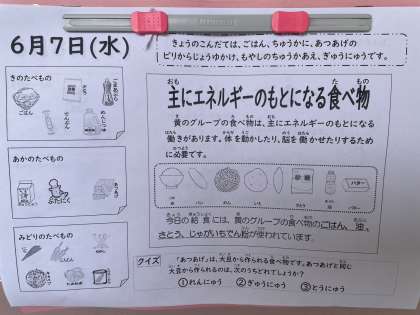 6月7日(水)
きょうのこんだては、ごはん、ちゅうかに、あつあげの
ピリからじょうゆかけ、もやしのちゅうかあえ、ぎゅうにゅうです。
きのたべもの
ごはん
でんぷん
あかのたべもの
ぶたにく
あつあげ
みどりのたべもの
主にエネルギーのもとになる食べ物
黄のグループの食べ物は、主にエネルギーのもとになる
働きがあります。体を動かしたり、脳を働かせたりするため
に必要です。
砂糖
油
バター
今日の給食には、黄のグループの食べ物のごはん、油、
さとう、じゃがいもでん粉が使われています。
クイズ
「あつあげ」は、大豆から作られる食べ物です。あつあげと同じ
大豆から作られるのは、次のうちどれでしょうか?
①れんにゅう ②ぎゅうにゅう ③とうにゅう